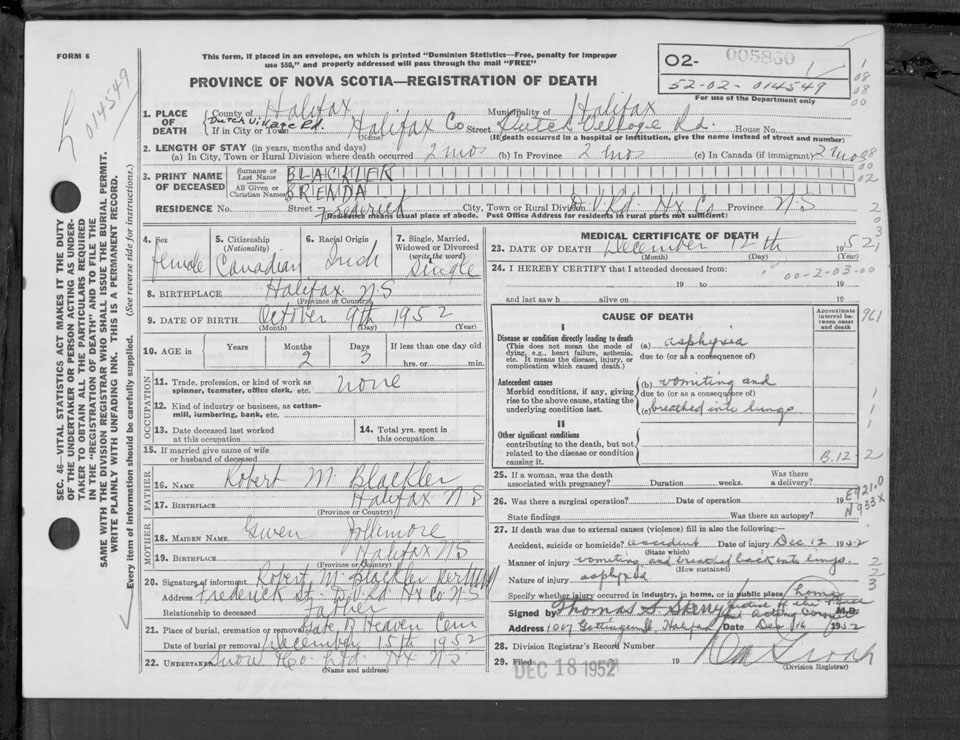 FORM 6
This form, if placed in an envelope, on which is printed "Dominion Statistics—Free, penalty for improper
use $50," and properly addressed will pass through the mail "FREE"
PROVINCE OF NOVA SCOTIA—REGISTRATION OF DEATH
O2- 005860
52-02-014549
For use of the Department only
014549
SEC. 46—VITAL STATISTICS ACT MAKES IT THE DUTY
OF THE UNDERTAKER OR PERSON ACTING AS UNDER-
TAKER TO OBTAIN ALL THE PARTICULARS REQUIRED
IN THE "REGISTRATION OF DEATH" AND TO FILE THE
SAME WITH THE DIVISION REGISTRAR WHO SHALL ISSUE THE BURIAL PERMIT.
WRITE PLAINLY WITH UNFADING INK. THIS IS A PERMANENT RECORD.
Every item of information should be carefully supplied. (See reverse side for instructions.)
1. PLACE OF DEATH
County of Halifax Municipality of Halifax
Dutch Village Rd.
If in City or Town Halifax Co Street Dutch Village Rd. House No.
(Name) (If death occurred in a hospital or institution, give the name instead of street and number)
2. LENGTH OF STAY (in years, months and days)
(a) In City, Town or Rural Division where death occurred 2 mos (b) In Province 2 mos (c) In Canada (if immigrant) 2 mos
3. PRINT NAME OF DECEASED
Surname or Last Name BLACKLER
All Given or Christian Names BRENDA
RESIDENCE No. Street Frederick City, Town or Rural Division D.V. Rd. Hx Co Province N.S
(Residence means usual place of abode. Post Office Address for residents in rural parts not sufficient)
4. Sex female
5. Citizenship (Nationality) Canadian
6. Racial Origin Irish
7. Single, Married, Widowed or Divorced (write the word) Single
8. BIRTHPLACE Halifax N.S
(Province or Country)
9. DATE OF BIRTH October 9th 1952
(Month) (Day) (Year)
10. AGE in Years Months 2 Days 3 If less than one day old hrs. or min.
OCCUPATION
11. Trade, profession, or kind of work as
spinner, teamster, office clerk, etc. none
12. Kind of industry or business, as cotton-
mill, lumbering, bank, etc.
13. Date deceased last worked
at this occupation
14. Total yrs. spent in
this occupation
15. If married give name of wife
or husband of deceased
FATHER
16. NAME Robert M. Blackler
17. BIRTHPLACE Halifax N.S
(Province or Country)
MOTHER
18. MAIDEN NAME Gwen Jollimore
19. BIRTHPLACE Halifax N.S
(Province or Country)
20. Signature of informant Robert M Blackler
Address Frederick St. D.V. Rd. Hx Co N.S
Relationship to deceased Father
21. Place of burial, cremation or removal Gate of Heaven Cem
Date of burial or removal December 15th 1952
22. UNDERTAKER Snow & Co. Ltd. Hx N.S.
(Name and address)
MEDICAL CERTIFICATE OF DEATH
23. DATE OF DEATH December 12th 1952
(Month) (Day) (Year)
24. I HEREBY CERTIFY that I attended deceased from:
00-2-03-00
19 to 19
and last saw h alive on 19
CAUSE OF DEATH
Approximate interval between onset and death
I
Disease or condition directly leading to death
(This does not mean the mode of
dying, e.g., heart failure, asthenia,
etc. It means the disease, injury, or
complication which caused death.)
(a) asphyxia
due to (or as a consequence of)
Antecedent causes
Morbid conditions, if any, giving
rise to the above cause, stating the
underlying condition last.
(b) vomiting and
due to (or as a consequence of)
(c) breathed into lungs
II
Other significant conditions
contributing to the death, but not
related to the disease or condition
causing it.
961
B.12-2
25. If a woman, was the death
associated with pregnancy? Duration weeks. Was there a delivery?
26. Was there a surgical operation? Date of operation 19
State findings Was there an autopsy?
E921.0
N933X
27. If death was due to external causes (violence) fill in also the following:—
Accident, suicide or homicide? accident Date of injury Dec 12 1952
(State which)
Manner of injury vomiting and breathed back into lungs
(How sustained)
Nature of injury asphyxia
Specify whether injury occurred in industry, in home, or in public place home
Signed by Thomas M.D.
Address 1007 Gottingen St, Halifax Date Dec 16 1952
28. Division Registrar's Record Number
29. Filed DEC 18 1952 19
(Division Registrar)